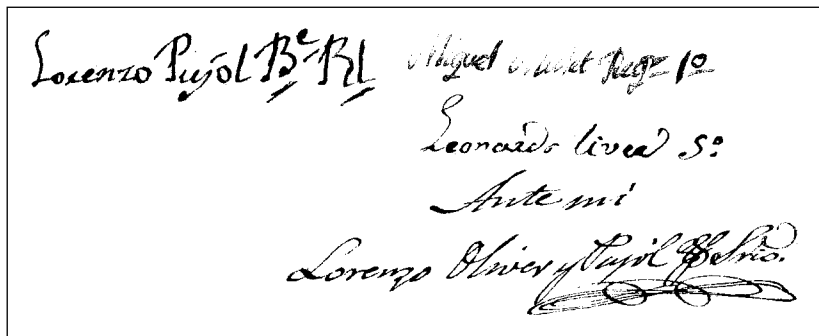 Lorenzo Pujol Be Rl Miguel Regor 1o
Leonardo Sº
Ante mi
Lorenzo Oliver y Pujol Srio.